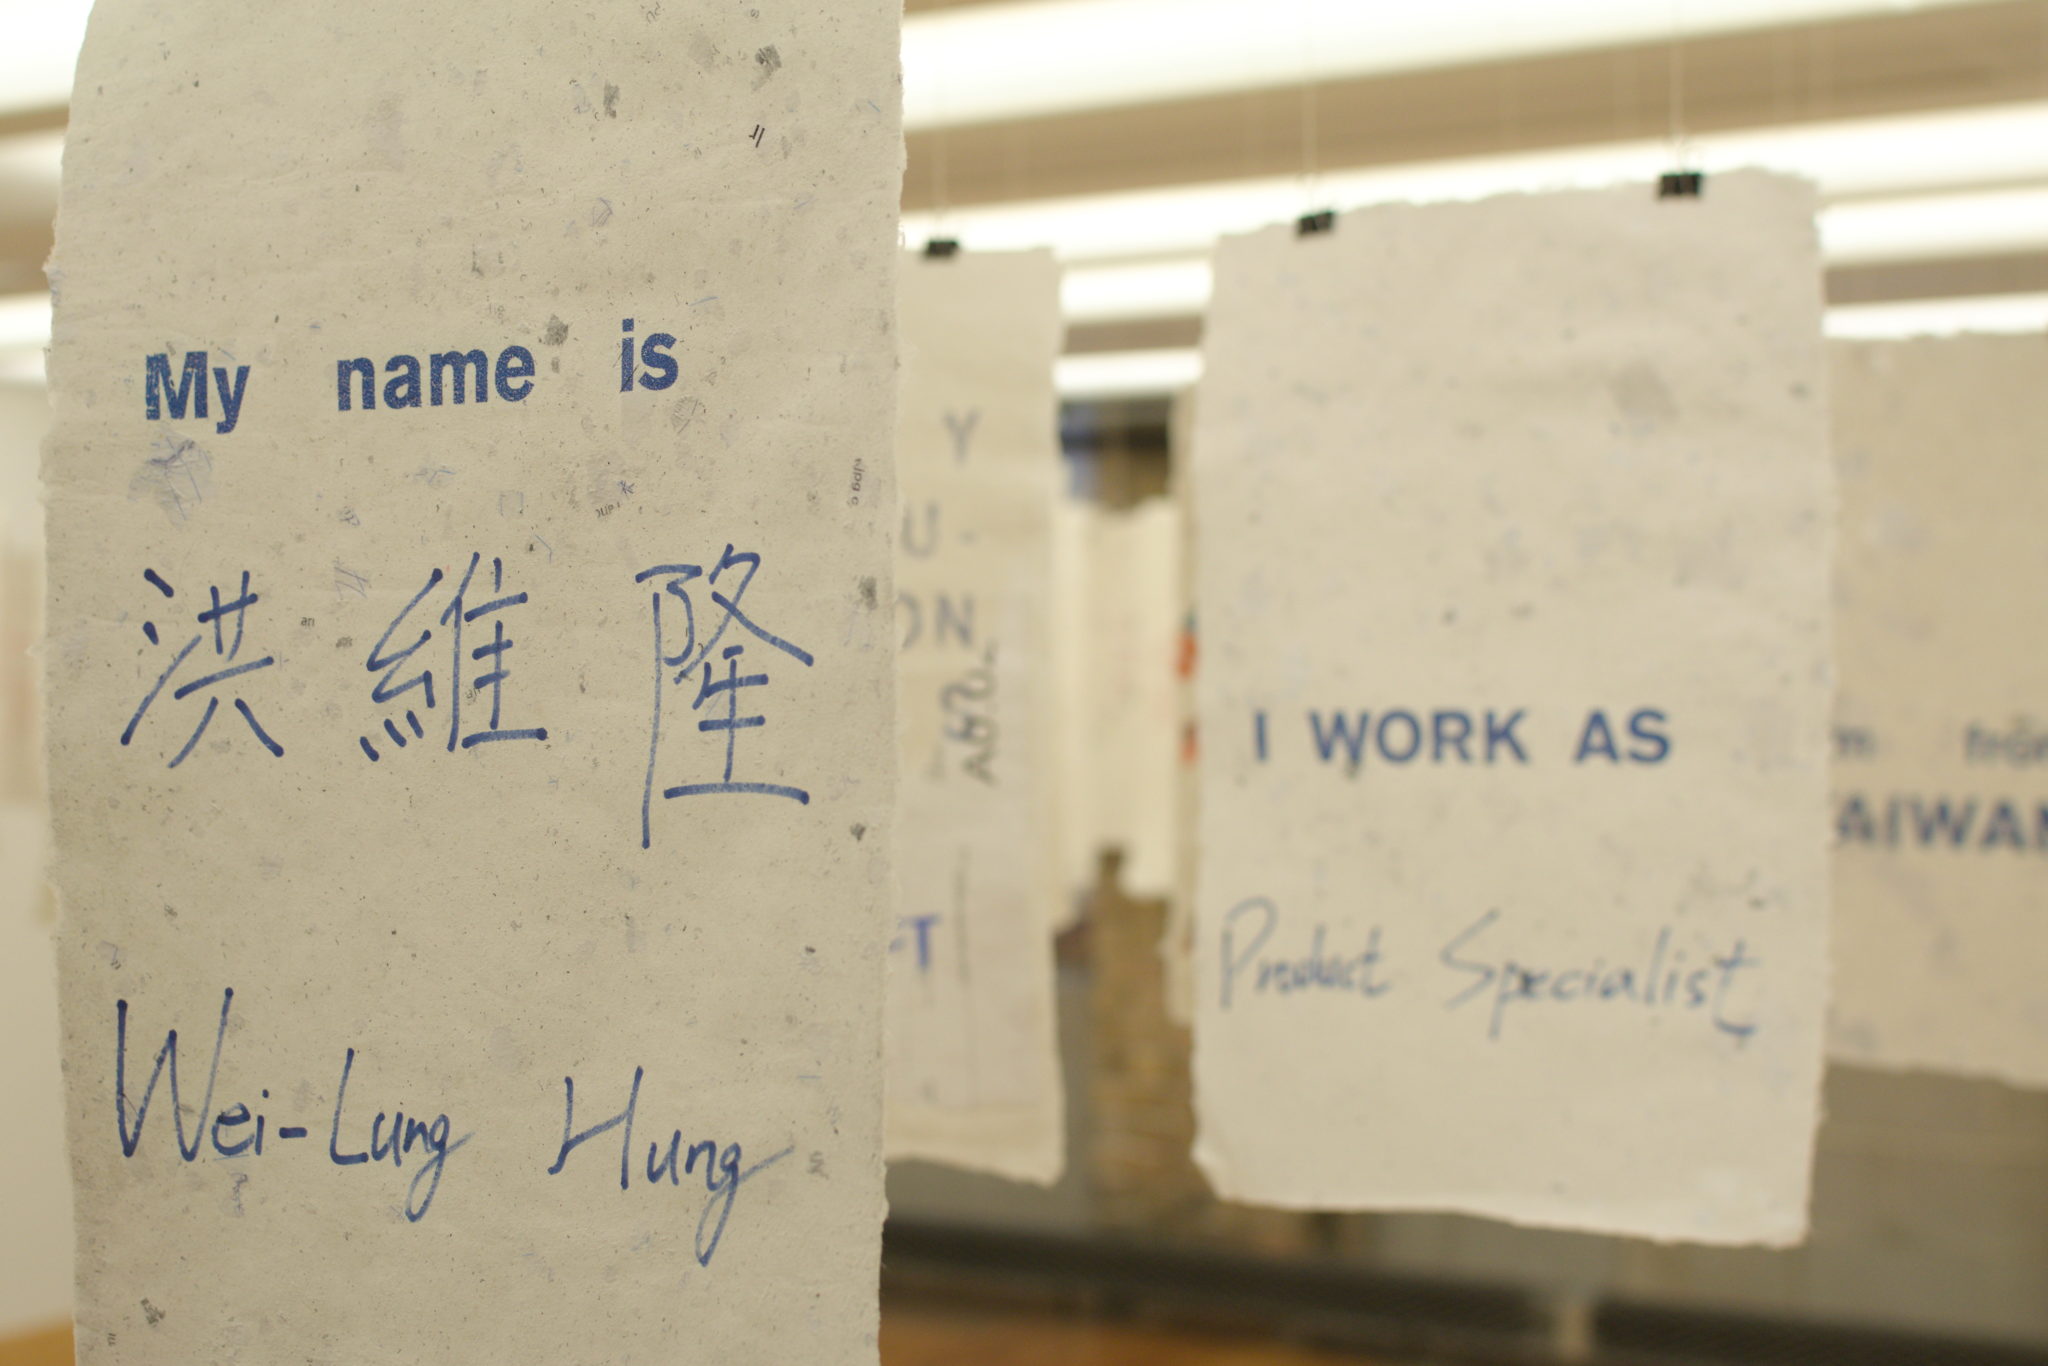 My name is
洪維隆
Wei-Lung Hung
Y
U.
ON
FT
I WORK AS
Product Specialist
från
TAIWAN